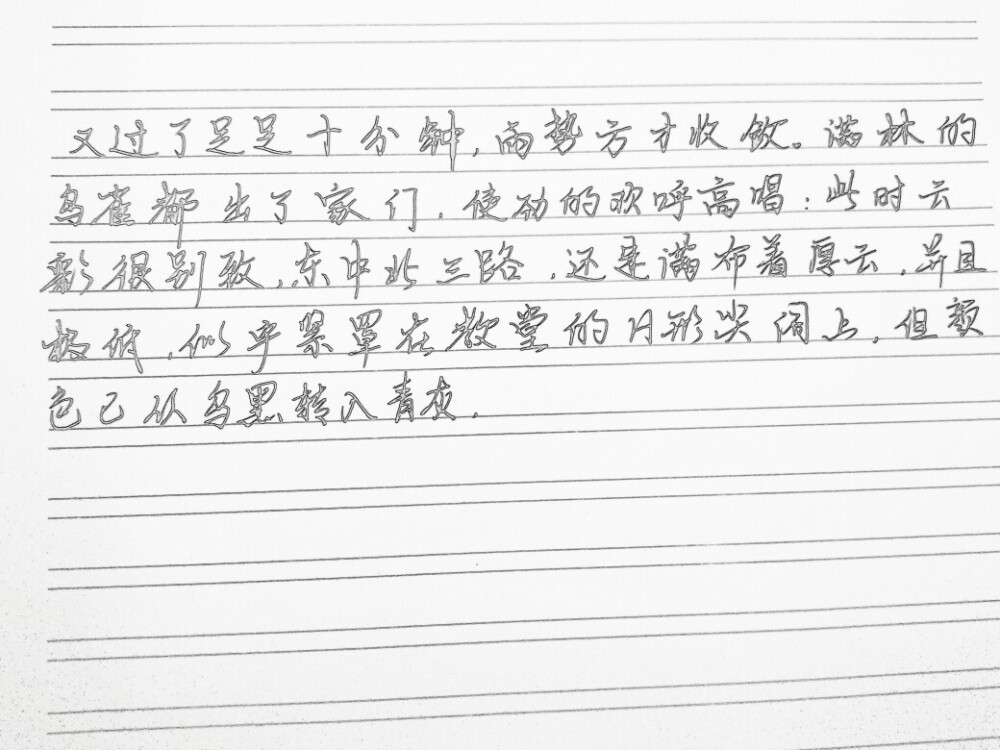 又过了足足十分钟，雨势方才收敛。满林的
鸟雀都出了家门，使劲的欢呼高唱；此时云
彩很别致，东中北三路，还是满布着厚云，并且
极低，似乎紧罩在教堂的H形尖阁上，但颜
色已从乌黑转入青灰，